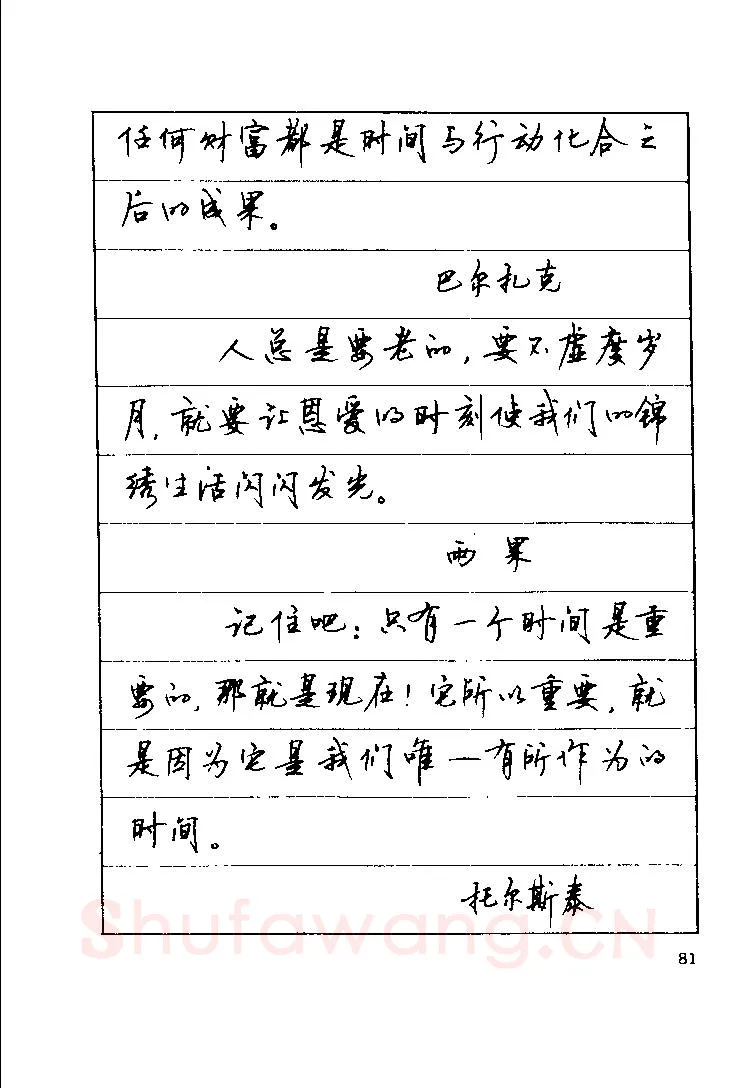 任何财富都是时间与行动化合之
后的成果。
巴尔扎克
人总是要老的，要不虚度岁
月，就要让恩爱的时刻使我们的锦
绣生活闪闪发光。
雨果
记住吧：只有一个时间是重
要的，那就是现在！它所以重要，就
是因为它是我们唯一有所作为的
时间。
托尔斯泰
Shufawang.CN
81